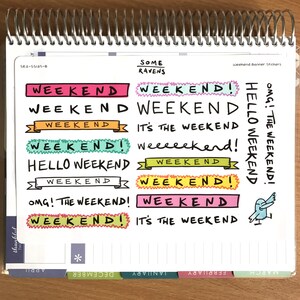 SOME
RAVENS
weekend banner stickers
WEEKEND
WEEKEND
WEEKEND
WEEKEND!
HELLO WEEKEND
WEEKEND
OMG! THE WEEKEND!
WEEKEND!
WEEKEND!
WEEKEND
IT'S THE WEEKEND
weeeeekend!
WEEKEND
WEEKEND!
WEEKEND
IT'S THE WEEKEND
OMG! THE WEEKEND!
HELLO WEEKEND
APRIL
DECEMBER
JANUARY
FEBRUARY
MARCH